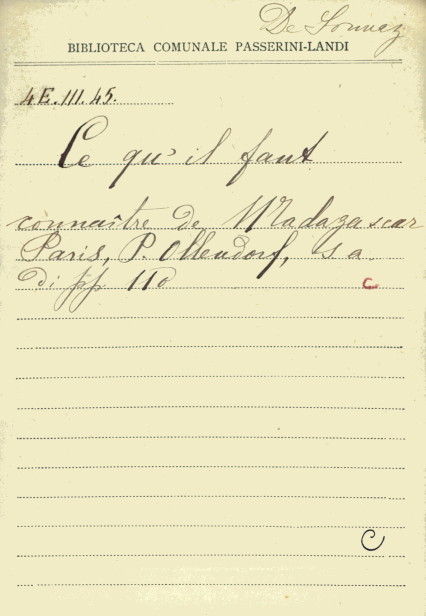 De Sonnaz
BIBLIOTECA COMUNALE PASSERINI-LANDI
4E.III.45.
Ce qu'il faut
connaître de Madagascar
Paris, P. Ollendorf, s a.
di pp 110
C
C